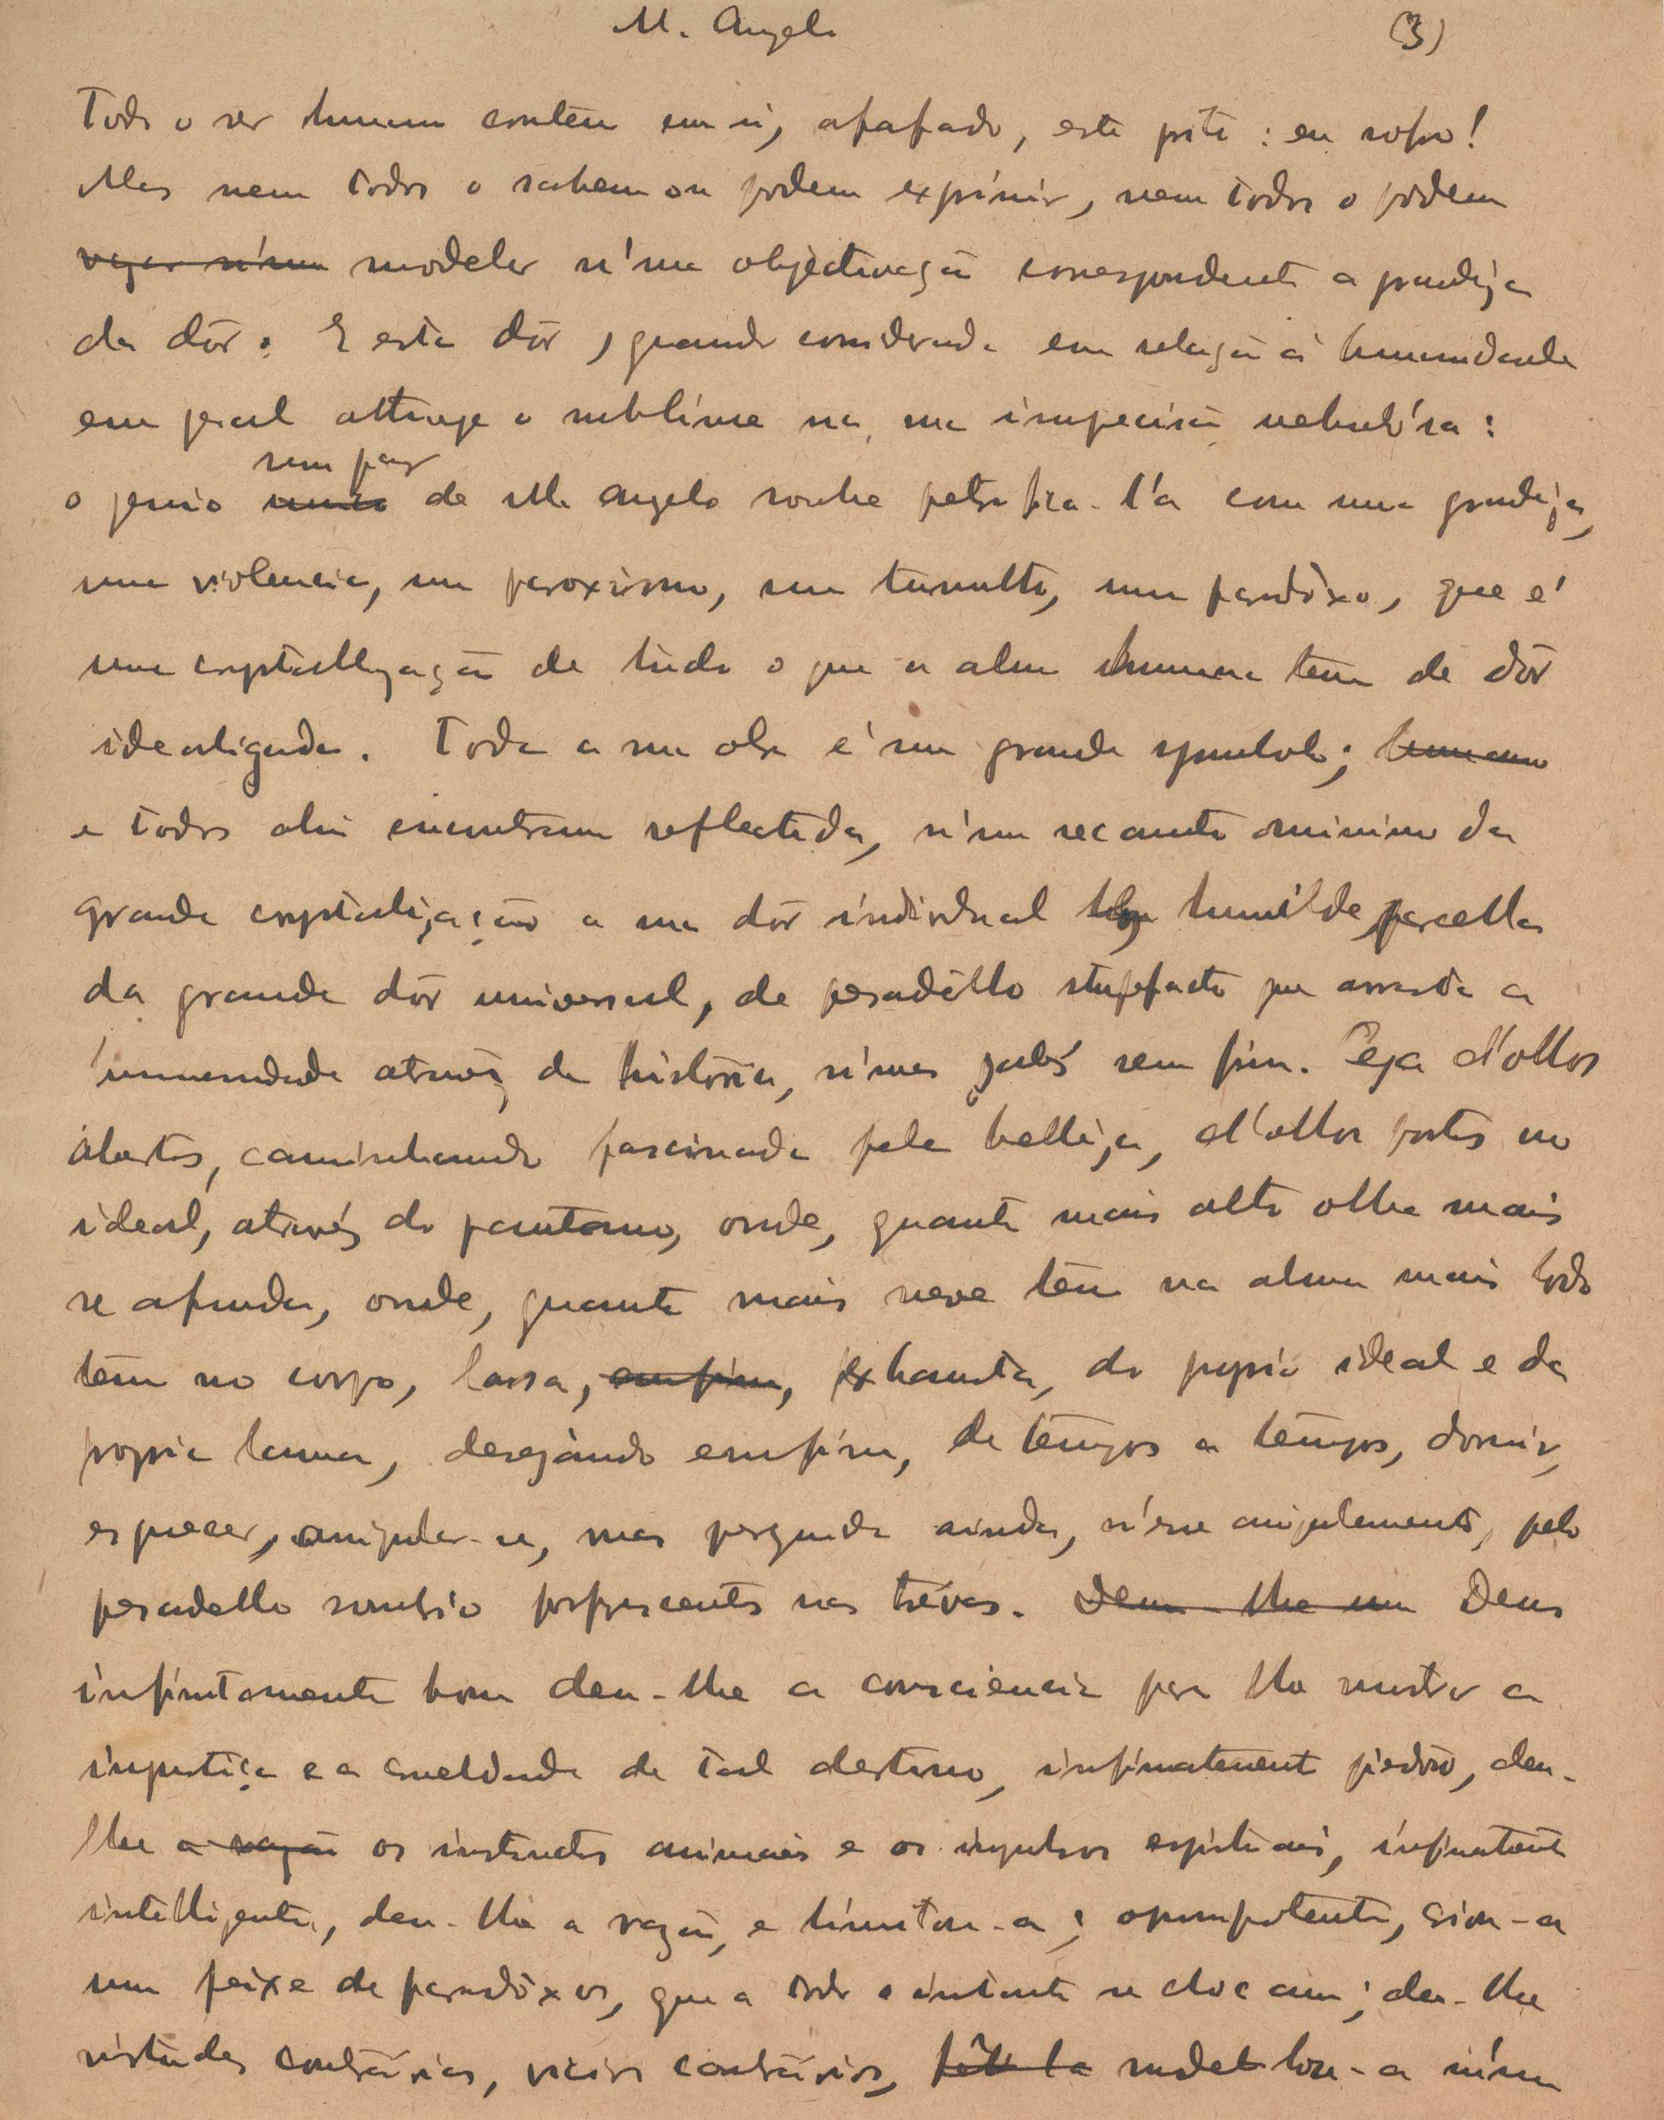 M. Angelo (3)
Todo o ser humano contem em si, abafado, este grito: eu soffro!
Mas nem todos o sabem ou podem exprimir, nem todos o podem
modelar n'uma objectivação correspondente a grandeza
da dôr. E esta dôr, quando considerada em relação á humanidade
em geral attinge o sublime na sua imprecisão nebulósa:
sem par
o genio unico de M. Angelo soube petrifica-l'a com uma grandeza,
uma violencia, um paroxismo, um tumulto, um paradôxo, que é
uma crystallização de tudo o que a alma humana tem de dôr
idealizada. Toda a sua obra é um grande symbolo; humano
e todos ali encontram reflectida, n'um recanto minimo da
grande crystalização a sua dôr individual humilde parcella
da grande dôr universal, de pesadêllo stupefacto que arrasta a
humanidade atravez da história, n'uma galé sem fim. Cega d'olhos
abertos, caminhando fascinada pela belleza, d'olhos postos no
ideal, atravéz do pantano, onde, quanto mais alto olha mais
se afunda, onde, quanto mais neve tem na alma mais lodo
tem no corpo, lassa, emfim, exhausta, do proprio ideal e da
propria lama, desejando emfim, de tempos a tempos, dormir,
esquecer, aniquilar-se, mas perseguida ainda, n'esse aniquilamento, pelo
pesadello sombrio phosphorescente nas trévas. Deu-lhe um Deus
infinitamente bom deu-lhe a consciencia para lhe mostrar a
injustiça e a crueldade de tal destino, infinitamente piedoso, deu-
lhe a razão os instinctos animaes e os impulsos espirituaes, infinitamente
intelligente, deu-lhe a razão, e limitou-a; omnipotente, criou-a
um feixe de paradôxos, que a todo o instante se chocam; deu-lhe
virtudes contrárias, vicios contrários, modellou-a n'um